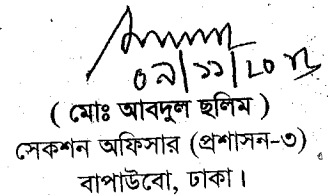 ০৯/১১/২০২২
( মোঃ আবদুল ছলিম )
সেকশন অফিসার (প্রশাসন-৩)
বাপাউবো, ঢাকা।